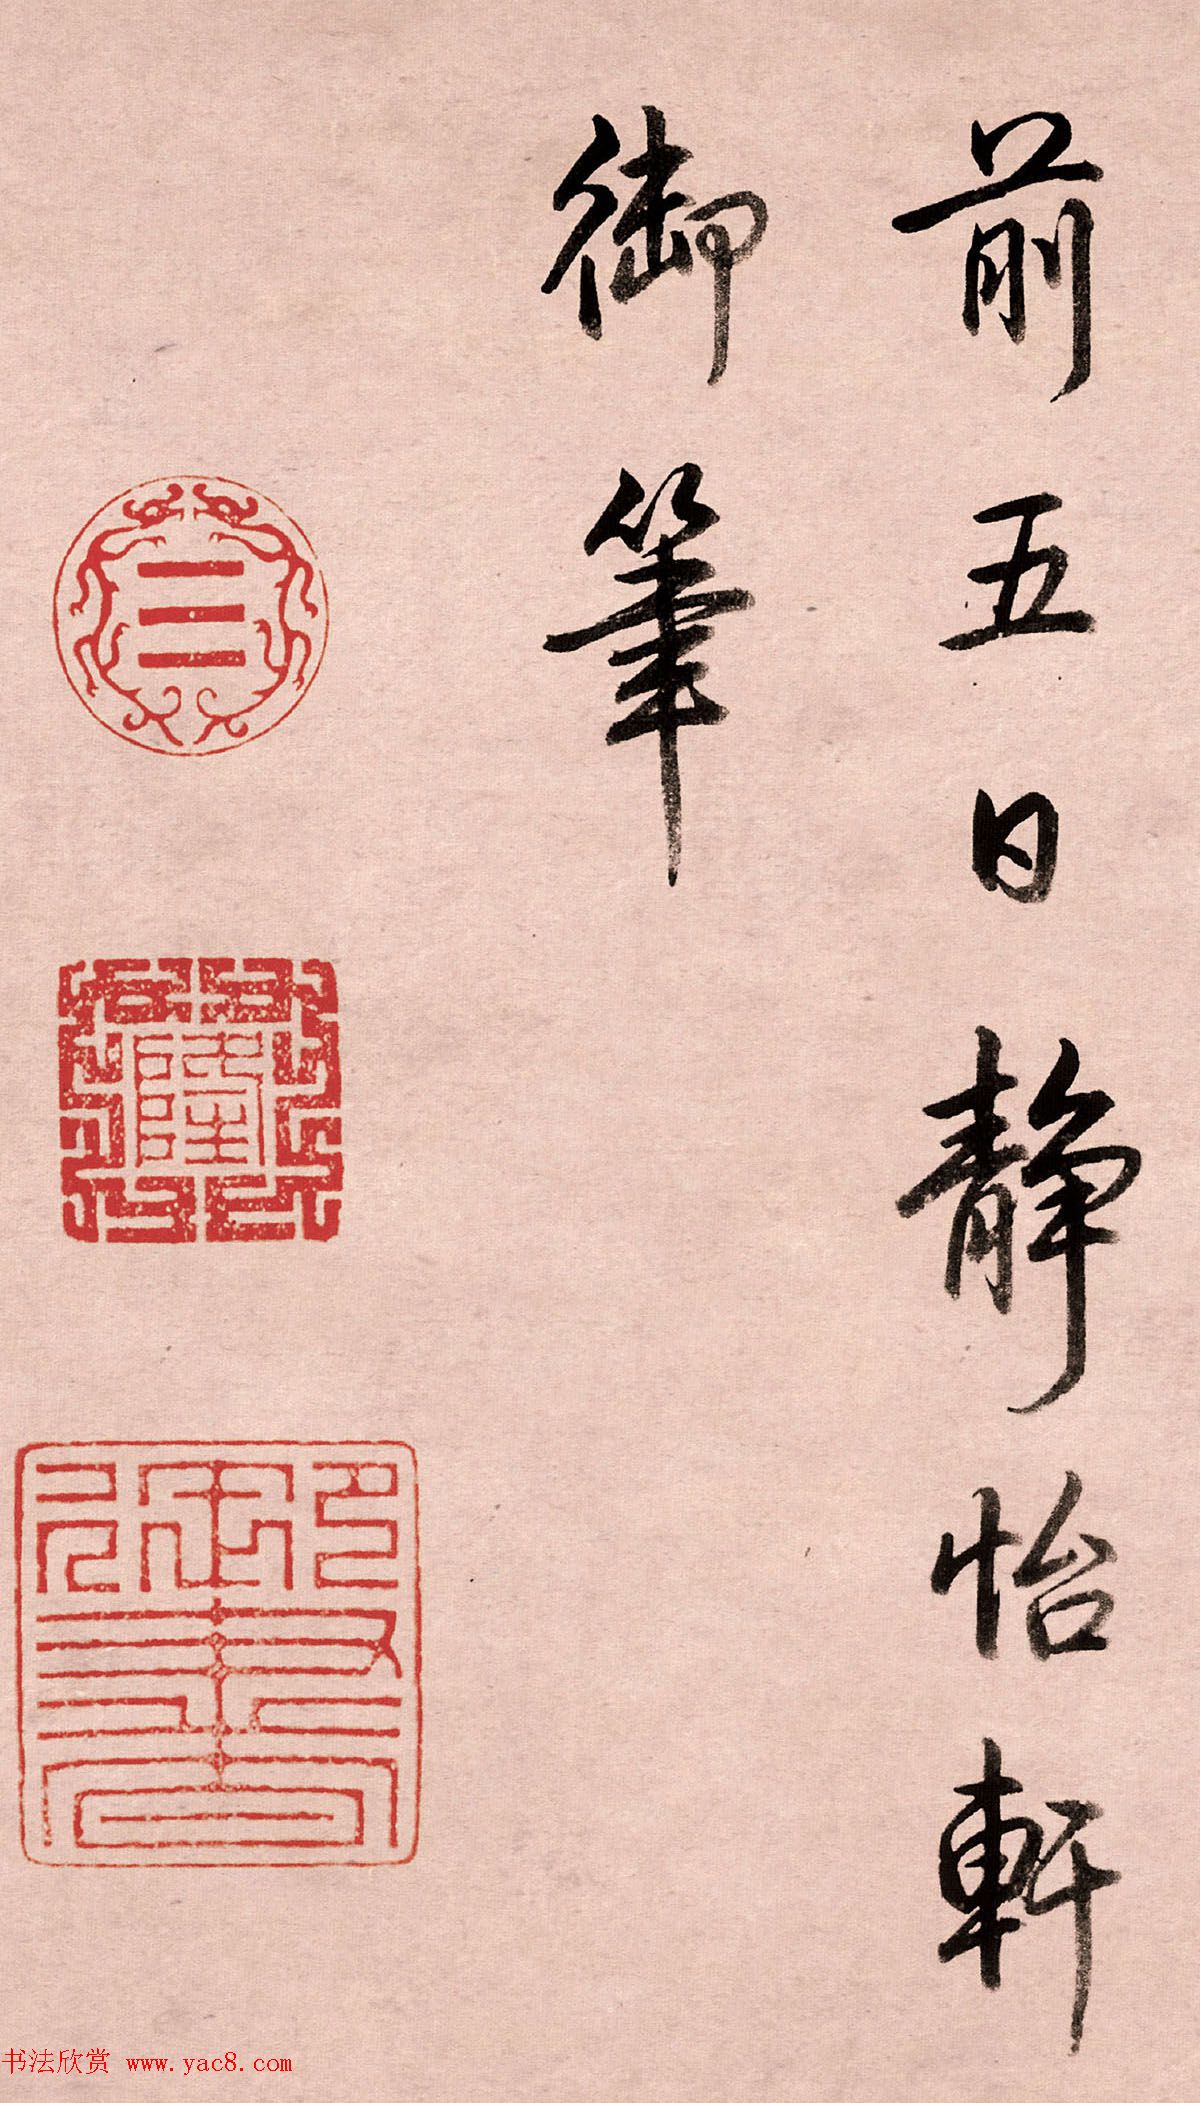 前五日静怡軒
御筆
隆
御書
书法欣赏 www.yac8.com